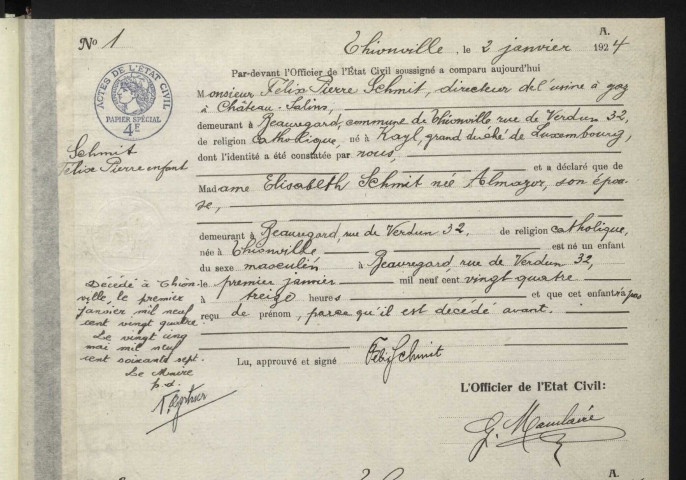 A.
No 1
Thionville, le 2 janvier 1924
Par-devant l'Officier de l'État Civil soussigné a comparu aujourd'hui
Monsieur Félix Pierre Schmit, directeur de l'usine à gaz
à Château-Salins,
demeurant à Beauregard, commune de Thionville rue de Verdun 32,
de religion catholique, né à Kayl, grand duché de Luxembourg,
dont l'identité a été constatée par nous,
et a déclaré que de
Madame Elisabeth Schmit née Almazor, son épou-
se,
demeurant à Beauregard, rue de Verdun 32, de religion catholique,
née à Thionville est né un enfant
du sexe masculin à Beauregard rue de Verdun 32,
le premier janvier mil neuf cent vingt quatre
à treize heures et que cet enfant n'a pas
reçu de prénom, parce qu'il est décédé avant.
Lu, approuvé et signé
Félix Schmit
L'Officier de l'Etat Civil:
ACTES DE L'ÉTAT CIVIL
PAPIER SPÉCIAL
4E
Schmit
Félix Pierre enfant
Décédé à Thion-
ville, le premier
janvier mil neuf
cent vingt quatre.
Le vingt cinq
mai mil neuf
cent soixante sept.
Le Maire
p.d.
A.